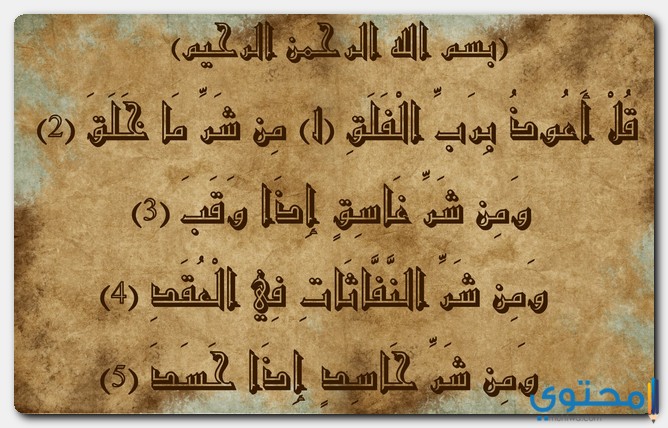 (بسم الله الرحمن الرحيم)
قُلْ أَعُوذُ بِرَبِّ الْفَلَقِ (1) مِن شَرِّ مَا خَلَقَ (2)
وَمِن شَرِّ غَاسِقٍ إِذَا وَقَبَ (3)
وَمِن شَرِّ النَّفَّاثَاتِ فِي الْعُقَدِ (4)
وَمِن شَرِّ حَاسِدٍ إِذَا حَسَدَ (5)
محتوي